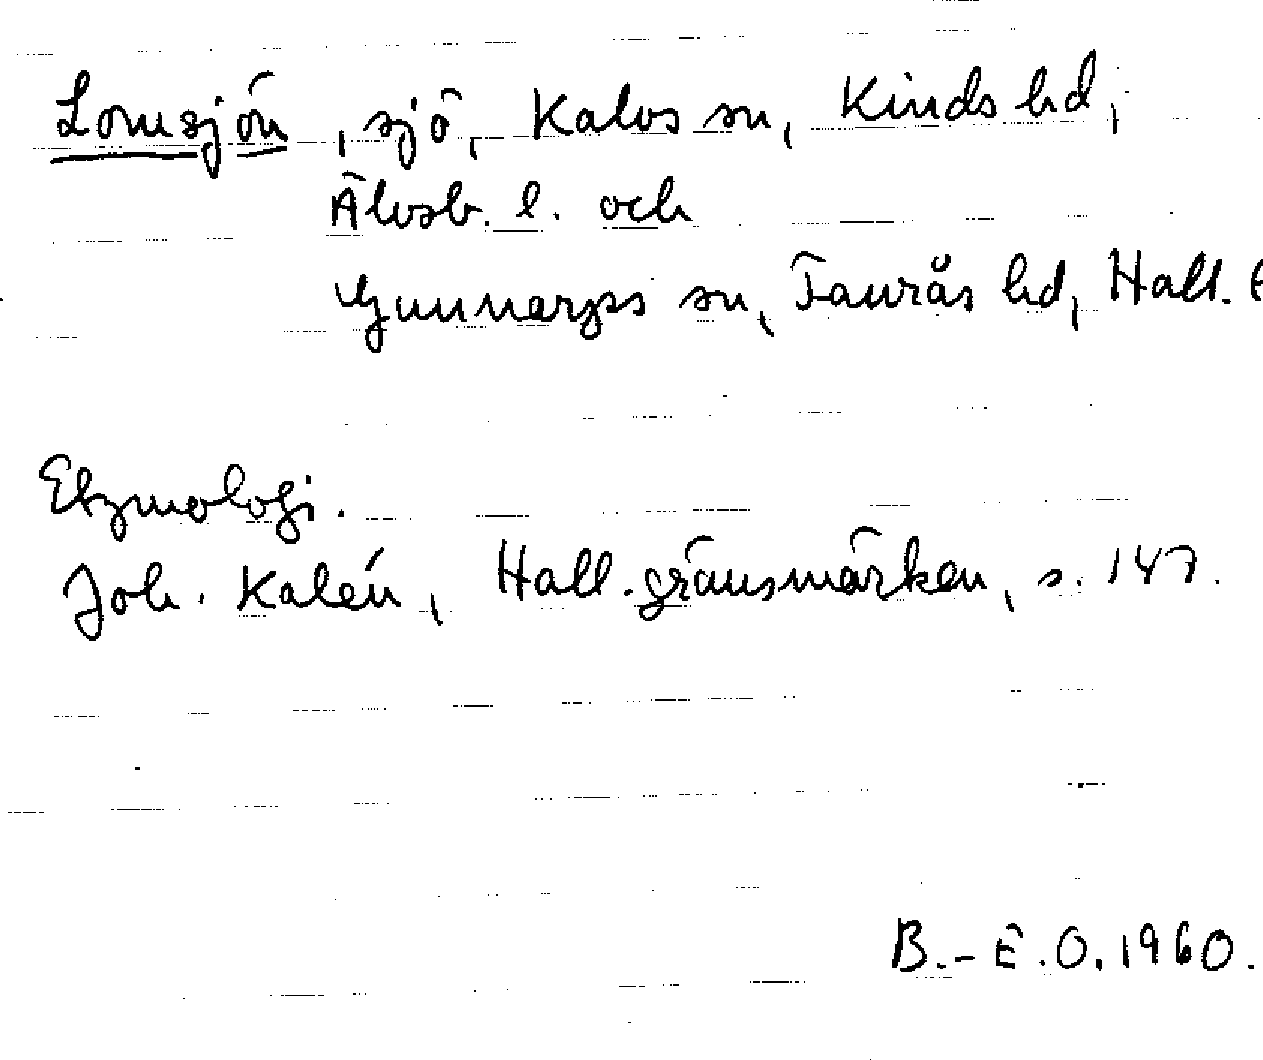 Lomsjön, sjö, Kalvs sn, Kinds hd,
Älvsb. l. och
Gunnarps sn, Faurås hd, Hall. l
Etymologi.
Joh. Kalén, Hall. gränsmärken, s. 147.
B.-E.O. 1960.